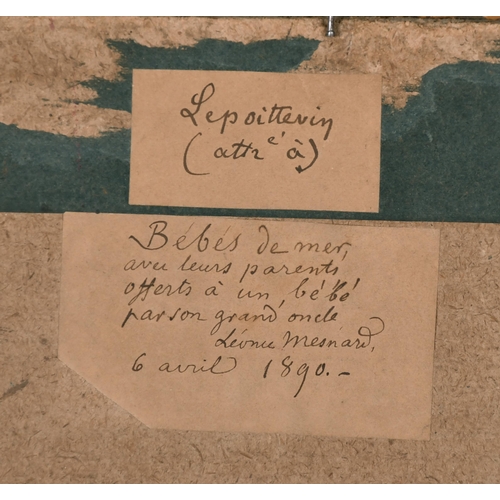 Lepoittevin
(attr é à)
Bébés de mer,
avec leurs parents
offerts à un bébé
par son grand oncle
Léonce Mesnard,
6 avril 1890.-